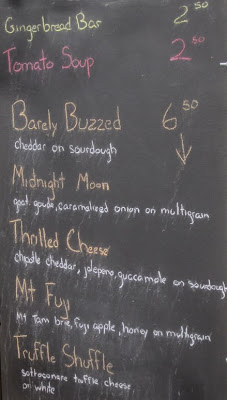 Gingerbread Bar 2 50
Tomato Soup 2 50
Barely Buzzed 6 50
cheddar on sourdough
Midnight Moon
goat gouda, caramelised onion on multigrain
Thrilled Cheese
chipotle cheddar, jalepeno, guccamole on sourdough
Mt Fuji
Mt Tam brie, fuji apple, honey on multigrain
Truffle Shuffle
sottocenere truffle cheese
on white